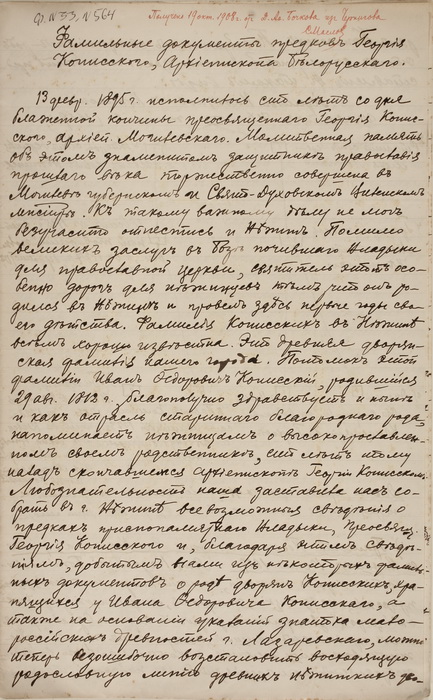 Ф. №33, №564
Получено 19 окт. 1908 г. от
Фамильные документы предковъ Георгія
Конисскаго, Архіепископа Бѣлорусскаго.
13 февр. 1895 г. исполнилось сто лѣтъ со дня
блаженной кончины преосвященнаго Георгія Конис-
скаго, архіеп. Могилевскаго. Молитвенная память
объ этомъ знаменитомъ защитникѣ православія
прошлаго вѣка торжественно совершена въ
Могилевѣ губернскомъ и Свято-Духовскомъ Виленскомъ
монастырѣ. Къ такому важному дѣлу не могъ
безучастно отнестись и Нѣжинъ. Помимо
великихъ заслугъ въ Бозѣ почившаго Владыки
для православной церкви, святитель этотъ осо-
бенно дорогъ для нѣжинцевъ тѣмъ, что онъ ро-
дился въ Нѣжинѣ и провелъ здѣсь первые годы сво-
его дѣтства. Фамилія Конисскихъ въ Нѣжинѣ
всѣмъ хорошо извѣстна. Это древняя дворян-
ская фамилія нашего города. Потомокъ этой
фамиліи Иванъ Ѳедоровичъ Конисскій, родившійся
29 авг. 1812 г. благополучно здравствуетъ и нынѣ
и какъ отрасль стариннаго благороднаго рода,
напоминаетъ нѣжинцамъ о высокопоставлен-
номъ своемъ родственникѣ, сто лѣтъ тому
назадъ скончавшемся архіепископѣ Георгіи Конисскомъ.
Любознательность наша заставила насъ со-
брать въ г. Нѣжинѣ всѣ возможныя свѣдѣнія о
предкахъ приснопамятнаго Владыки, преосвящ.
Георгія Конисскаго и, благодаря этимъ свѣдѣ-
ніямъ, добытымъ нами изъ нѣкоторыхъ фамиль-
ныхъ документовъ о родѣ дворянъ Конисскихъ, хра-
нящихся у Ивана Ѳедоровича Конисскаго, а
также на основаніи указаній знатока мало-
россійскихъ древностей г. Лазаревскаго, можно
теперь безошибочно возстановить восходящую
родословную линію древнихъ нѣжинскихъ дво-